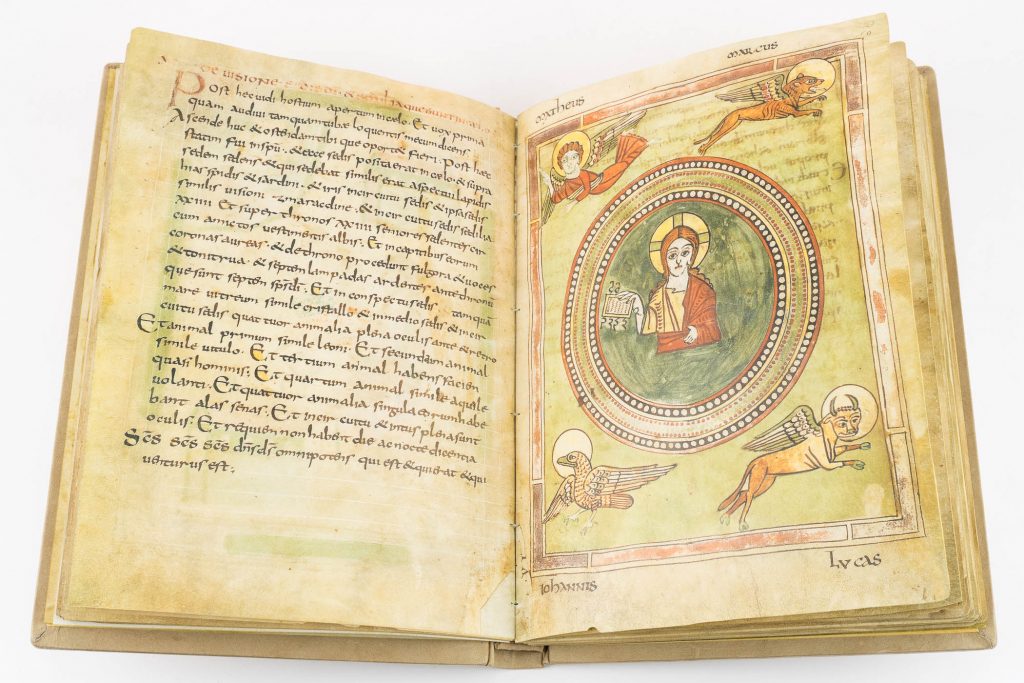 DE VISIONE
Post hec vidi hostium apertum incelo. Et vox prima
quam audivi tamquam tubæ loquentis mecum dicens
Ascende huc & ostendam tibi que oport& fieri. Post hæc
statim fui inspū. & ecce sedis posita erat in celo & supra
sedem sedens & qui sedebat similis erat aspectui lapidis
& sardini. & iris in circuitu sedis & ipsa sedis
similis visioni zmaracdine. & in circuitu sedis sedilia
XXIIII Et super thronos XXIIII seniores sedentes cir
cum amictos vestimentis albis. Et in capitibus eorum
coronas aureas. & de throno procedunt fulgora & voces
& tonitrua. & septem lampadas ardentes ante thronū
que sunt septem Et in conspectu sedis tamquā
mare vitreum simile cristallo & in medio sedis & in cir
cuitu sedis quattuor animalia plena oculis ante & retro
Et animal primum simile leoni. Et secundum animal
simile vitulo. Et tertium animal habens faciem
quasi hominis. Et quartum animal simile aquile
volanti. Et quattuor animalia singula eorum habe
bant alas senas. Et in circuitu & intus plena sunt
oculis. Et requiem non habent die ac nocte dicentia
Scs̄ scs̄ scs̄ dn̄s ds̄ omnipotens qui est & qui erat & qui
venturus est.
MARCUS
MATHEUS
IOHANNIS
LVCAS